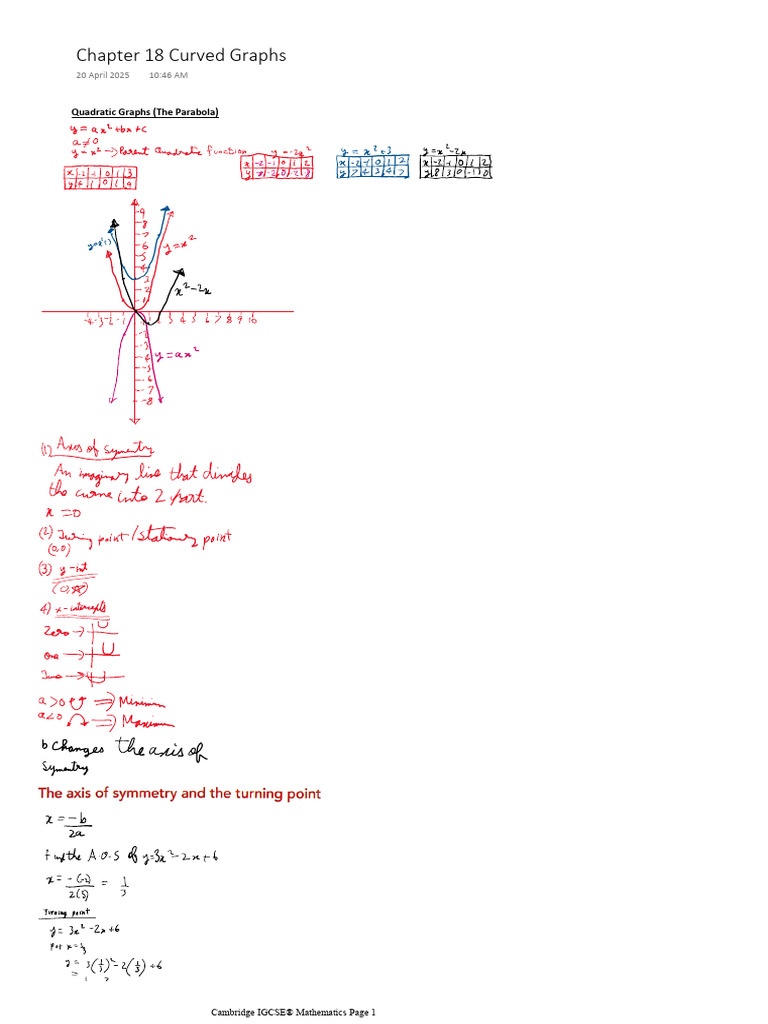 Chapter 18 Curved Graphs
20 April 2025 10:46 AM
Quadratic Graphs (The Parabola)
y = ax² + bx + c
a ≠ 0
y = x² → Parent Quadratic function
x -2 -1 0 1 3
y 4 1 0 1 9
y = -2x²
x -2 -1 0 1 2
y -8 -2 0 -2 8
y = x² + 3
x -2 -1 0 1 2
y 7 4 3 4 7
y = x² - 2x
x -2 -1 0 1 2
y 8 3 0 -1 0
9
8
7
6
5
4
3
2
1
y = x²
x² - 2x
-4 -3 -2 -1 1 2 3 4 5 6 7 8 9 10
-2
-3
-4
-5
-6
-7
-8
y = ax²
(1) Axis of Symentry
An imaginary line that divides
the curve into 2 part.
x = 0
(2) Turing point / Stationary point
(0,0)
(3) y-int
4) x-intercepts
Zero →
One →
Two →
a > 0 ⇒ Minimum
a < 0 ⇒ Maximum
b Changes the axis of
Symentry
The axis of symmetry and the turning point
x = -b
2a
Find the A.O.S of y = 3x² - 2x + 6
x = -(-2) = 1
2(3) 3
Turning point
y = 3x² - 2x + 6
For x = 1/3
y = 3(1/3)² - 2(1/3) + 6
=
Cambridge IGCSE® Mathematics Page 1